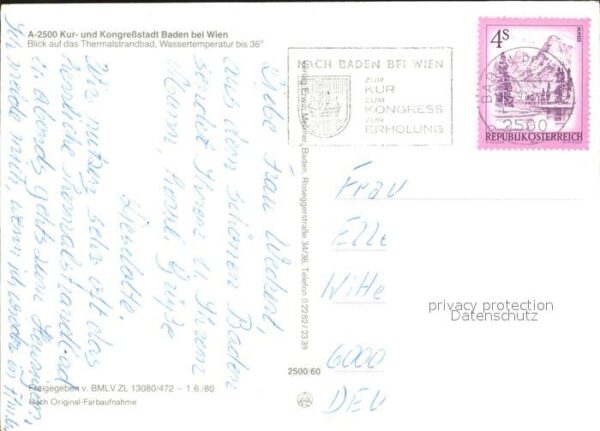 A-2500 Kur- und Kongreßstadt Baden bei Wien
Blick auf das Thermalstrandbad, Wassertemperatur bis 36°
Liebe Frau
aus dem schönen Baden
sendet Ihnen u. Ihrem
Mann, Grüße
Wir nutzen sehr oft das
herrliche Thermalstrandbad
abends gehts zum Heurigen,
wenn ich wieder in
Freigegeben v. BMLV ZL 13080/472 – 1.6./80
Nach Original-Farbaufnahme
Verlag Erwin Meißner, Baden, Roseggerstraße 34/36, Telefon 0 22 52 / 23 39
2500/60
NACH BADEN BEI WIEN
ZUR
KUR
ZUM
KONGRESS
ZUR
ERHOLUNG
4 S
ALMSEE
BADEN
2500
REPUBLIK ÖSTERREICH
Frau
Elle
Witte
6000
DEU
privacy protection
Datenschutz